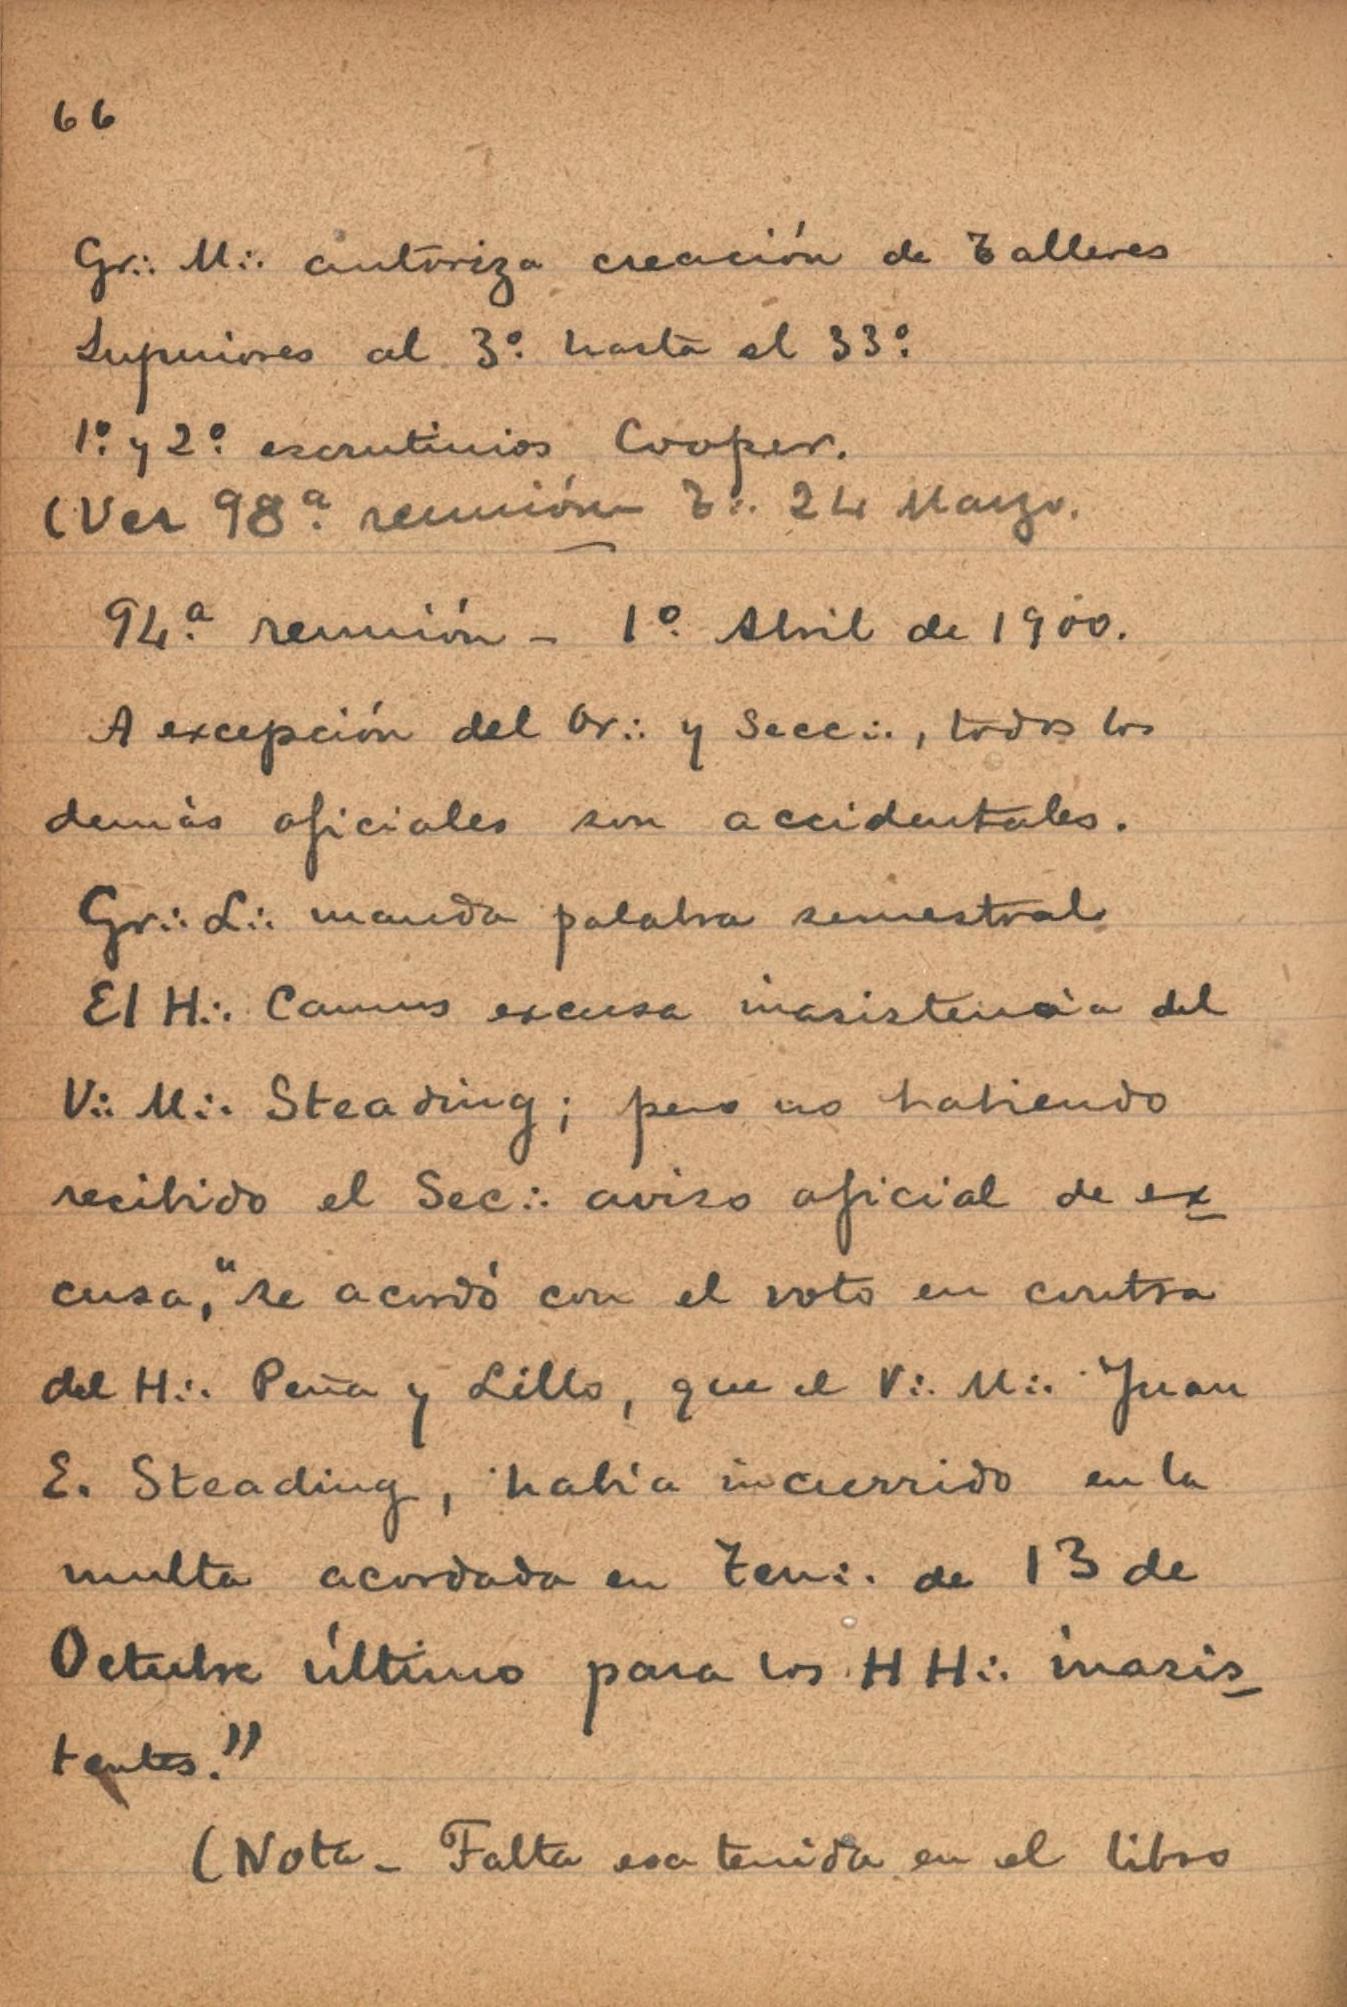 66
Gr∴ M∴ autoriza creación de Talleres
Superiores al 3º hasta el 33º
1º y 2º escrutinios Cooper.
(Ver 98ª reunión T∴ 24 Marzo.
94ª reunión - 1º Abril de 1900.
A excepción del Or∴ y Secc∴, todos los
demás oficiales son accidentales.
Gr∴ L∴ manda palabra semestral
El H∴ Camus excusa inasistencia del
V∴ M∴ Steading; pero no habiendo
recibido el Sec∴ aviso oficial de ex
cusa, "se acordó con el voto en contra
del H∴ Peña y Lillo, que el V∴ M∴ Juan
E. Steading, había incurrido en la
multa acordada en Ten∴ de 13 de
Octubre último para los HH∴ inasis
tentes."
(Nota - Falta esa tenida en el libro